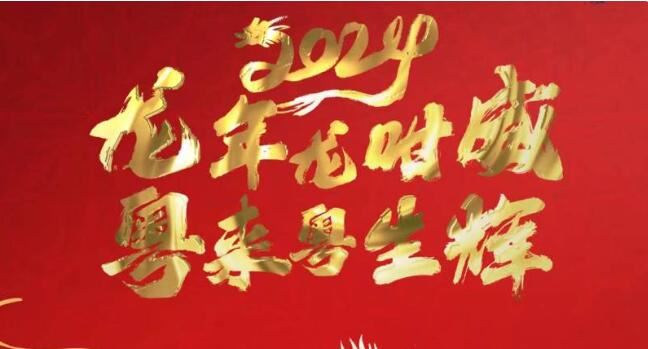 2024
龙年龙咁威
粤来粤生辉